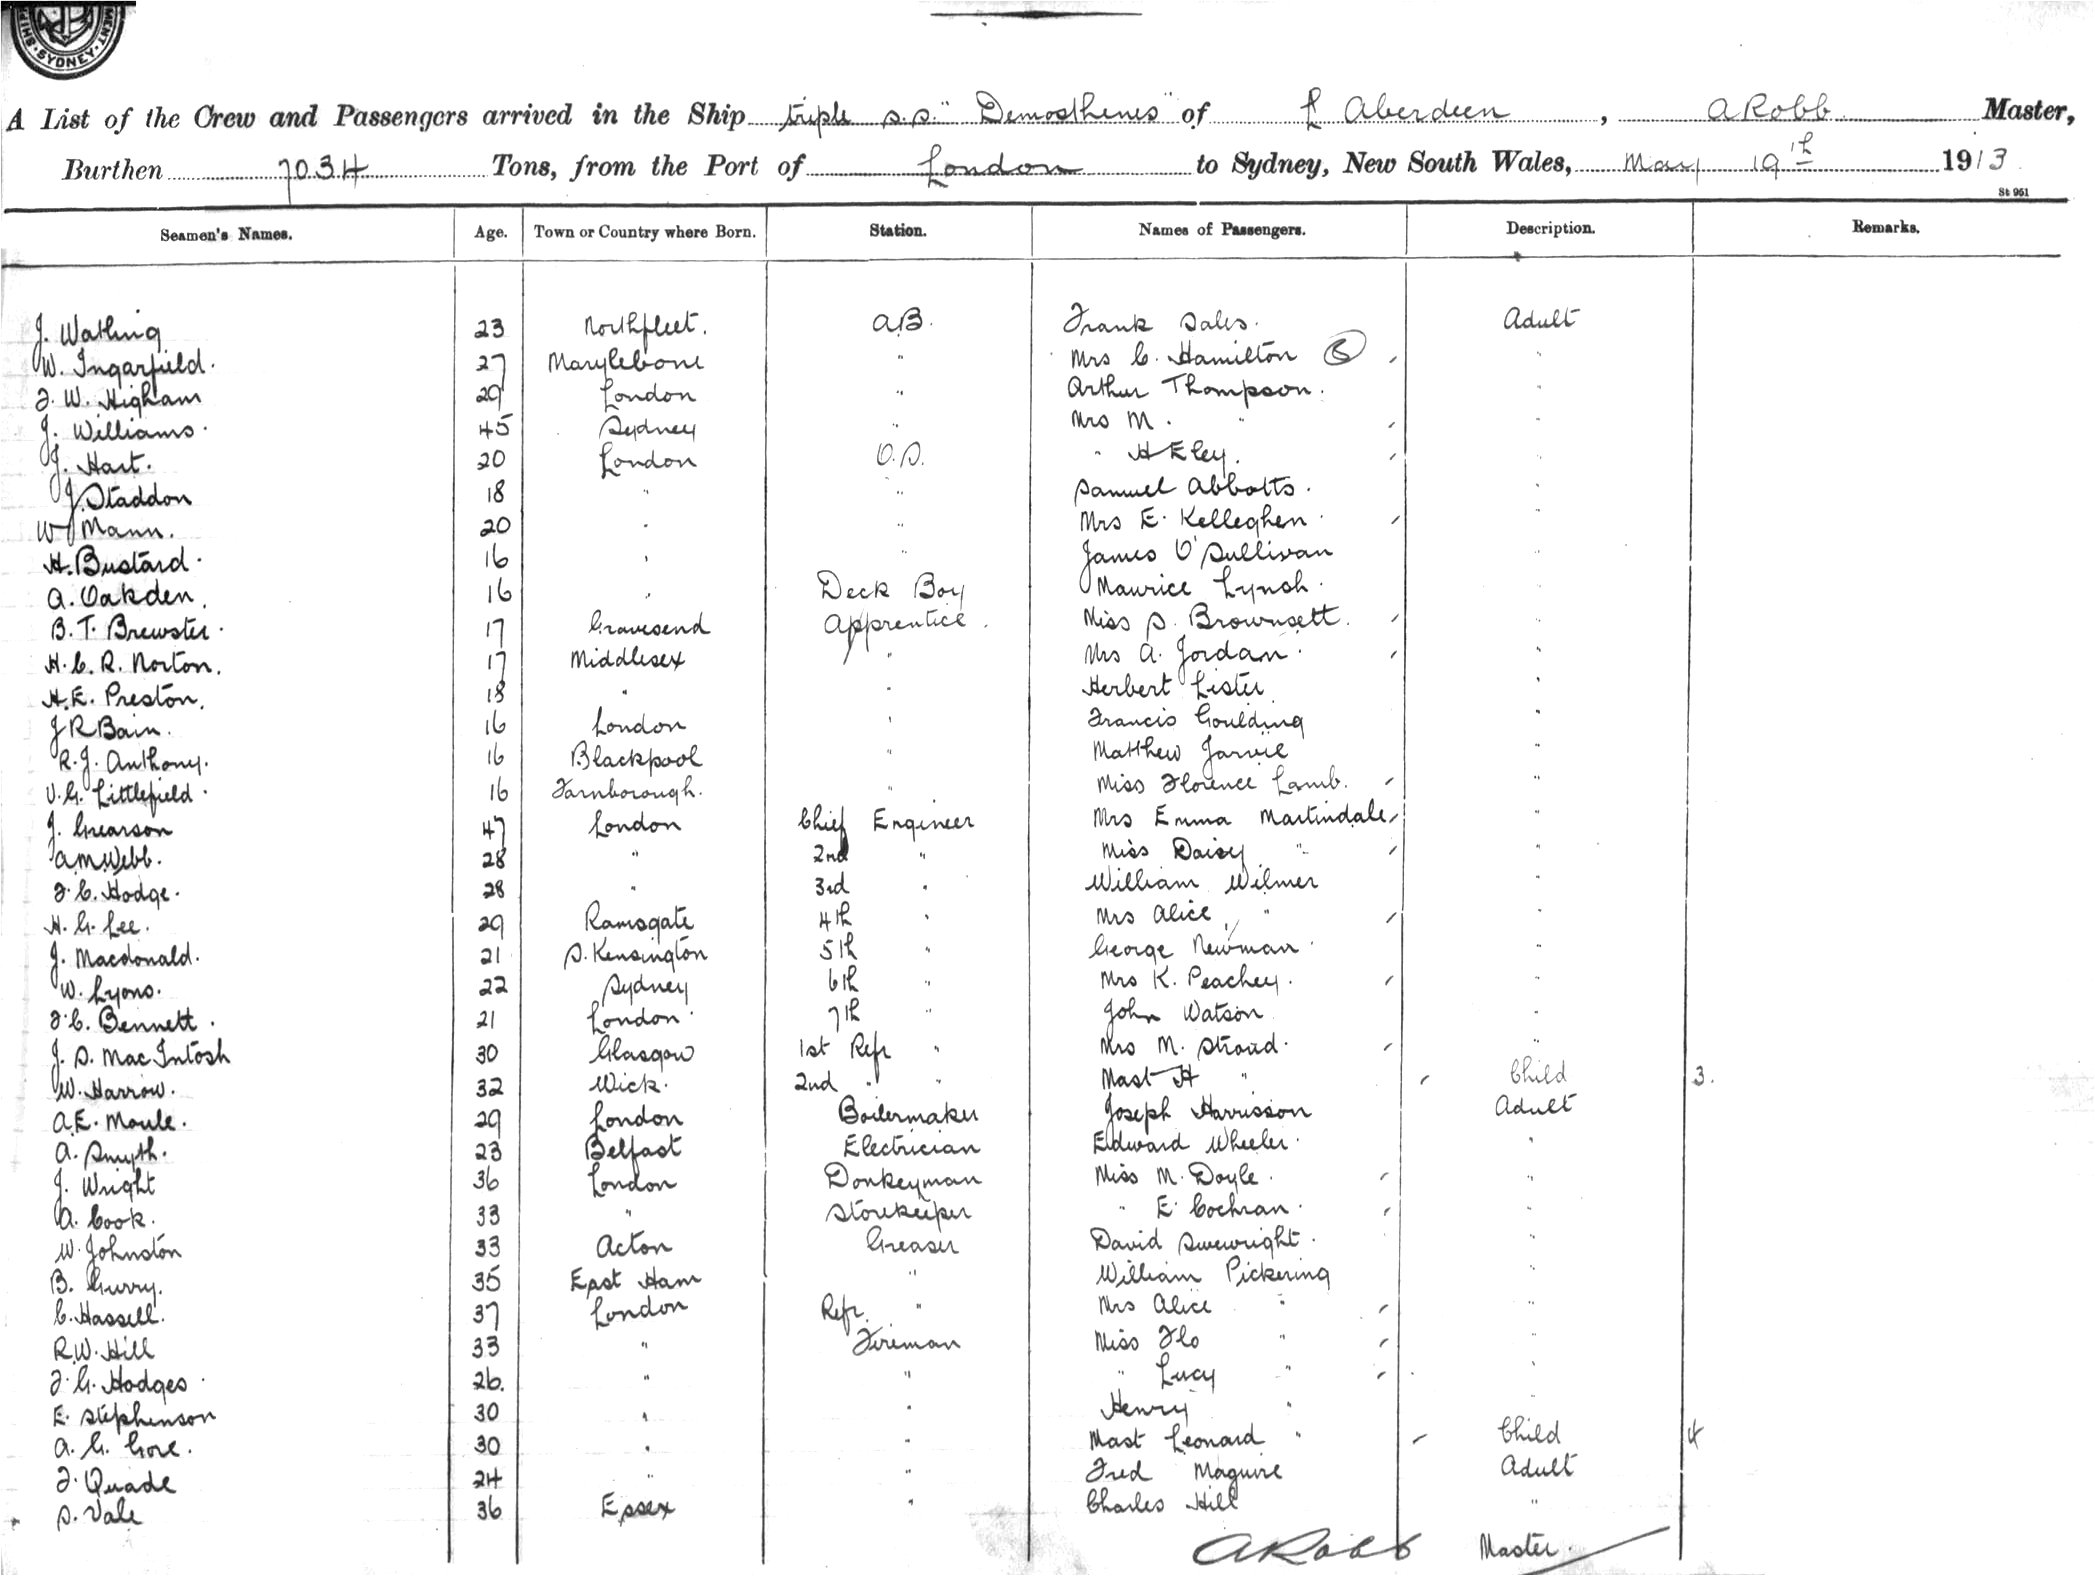 SYDNEY
A List of the Crew and Passengers arrived in the Ship triple s.s. "Demosthenes" of Aberdeen, A Robb Master,
Burthen 7034 Tons, from the Port of London to Sydney, New South Wales, May 19th 1913
St 961
Seamen's Names. Age. Town or Country where Born. Station. Names of Passengers. Description. Remarks.
J. Watling 23 Northfleet. A.B. Frank Sales. Adult
W. Ingarfield. 27 Marylebone " Mrs C. Hamilton "
F. W. Higham 29 London " Arthur Thompson. "
J. Williams. 45 Sydney " Mrs M. " "
J. Hart. 20 London O.S. " H Eley. "
J. Staddon 18 " " Samuel Abbotts. "
W Mann. 20 " " Mrs E. Kelleghen. "
H. Bustard. 16 " " James O'Sullivan "
A. Oakden. 16 " Deck Boy Maurice Lynch. "
B. T. Brewster. 17 Gravesend Apprentice. Miss S. Brownsett. "
H. C. R. Norton. 17 Middlesex " Mrs A. Jordan. "
H. E. Preston. 18 " " Herbert Lister "
J R Bain. 16 London " Francis Goulding "
R. J. Anthony. 16 Blackpool " Matthew Jarvie "
V. G. Littlefield. 16 Farnborough. " Miss Florence Lamb. "
J. Grearson 47 London Chief Engineer Mrs Emma Martindale "
A M Webb. 28 " 2nd " Miss Daisy " "
F. C. Hodge. 28 " 3rd " William Wilmer "
H. G. Lee. 29 Ramsgate 4th " Mrs Alice " "
J. Macdonald. 21 S. Kensington 5th " George Newman. "
W. Lyons. 22 Sydney 6th " Mrs K. Peachey. "
F. C. Bennett. 21 London 7th " John Watson "
J. S. MacIntosh 30 Glasgow 1st Refr " Mrs M. Stroud. "
W. Harrow. 32 Wick. 2nd " " Mast H " Child 3.
A. E. Moule. 29 London Boilermaker Joseph Harrisson Adult
A. Smyth. 23 Belfast Electrician Edward Wheeler. "
J. Wright 36 London Donkeyman Miss M. Doyle. "
A. Cook. 33 " Storekeeper " E. Cochran. "
W. Johnston 33 Acton Greaser David "
B. Gurry. 35 East Ham " William Pickering "
C. Hassell. 37 London Refr. " Mrs Alice " "
R. W. Hill 33 " Fireman Miss Flo " "
F. G. Hodges. 26. " " " Lucy " "
E. Stephenson 30 " " Henry " "
A. G. Gore. 30 " " Mast Leonard " Child 4
F. Quade 24 " " Fred Maguire Adult
S. Vale 36 Essex " Charles Hill "
A Robb Master.